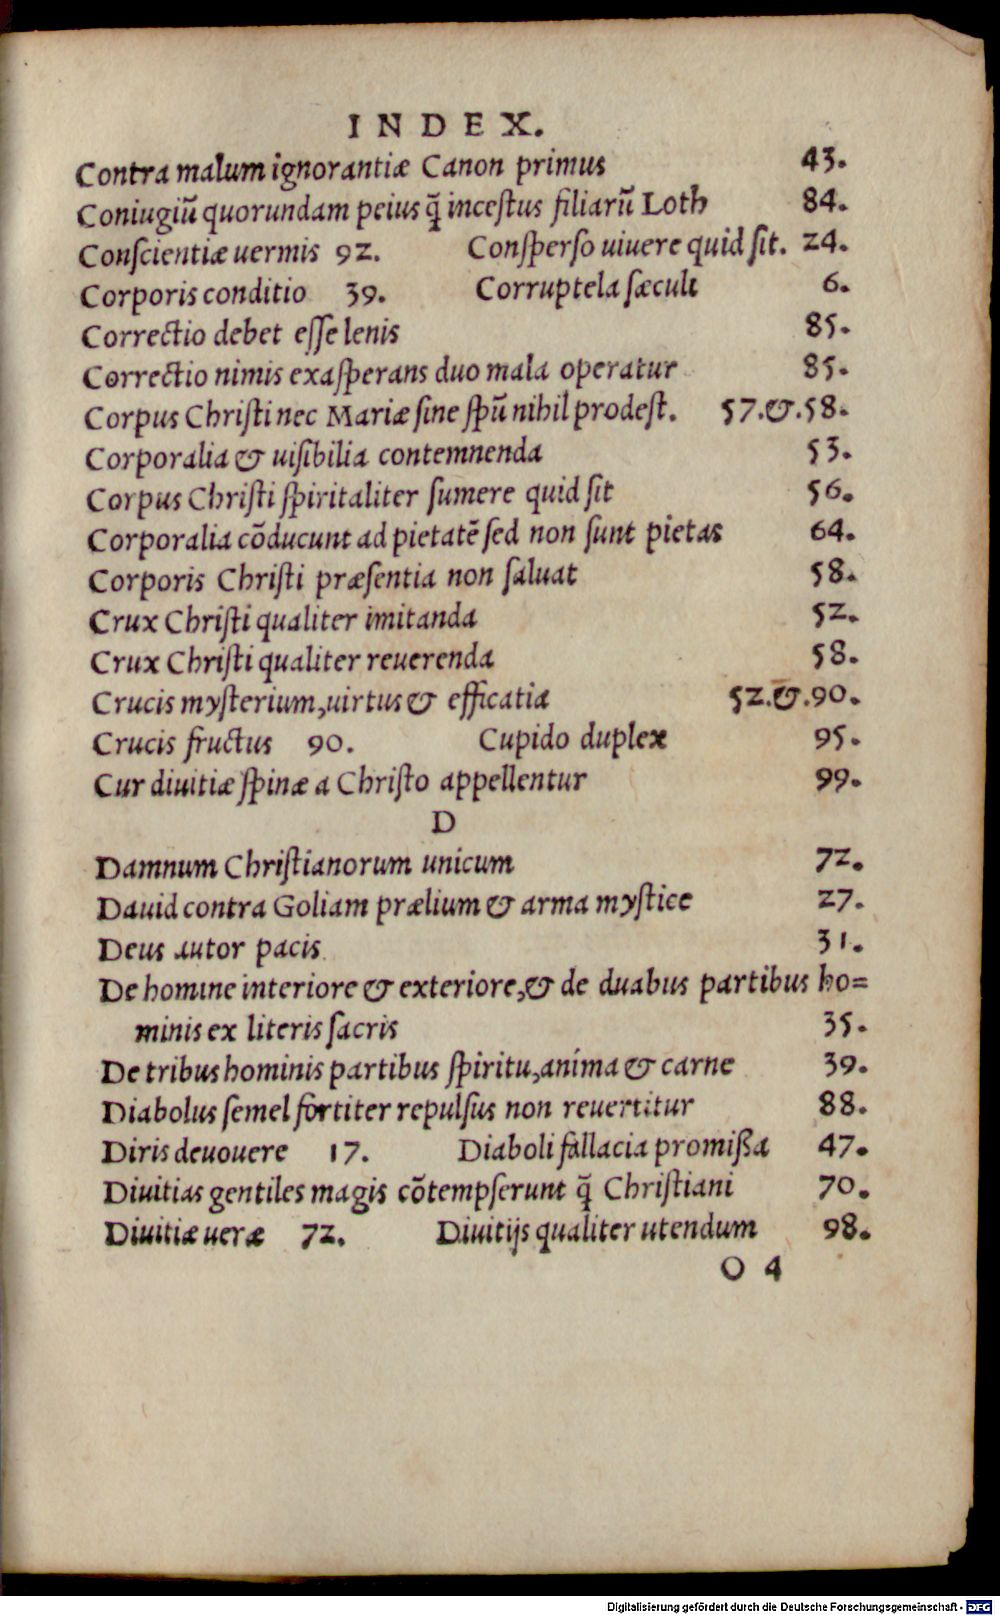 INDEX.
Contra malum ignorantiæ Canon primus 43.
Coniugiũ quorundam peius q̃ incestus filiarũ Loth 84.
Conscientiæ uermis 92. Consperso uiuere quid sit. 24.
Corporis conditio 39. Corruptela sæculi 6.
Correctio debet esse lenis 85.
Correctio nimis exasperans duo mala operatur 85.
Corpus Christi nec Mariæ sine spũ nihil prodest. 57.&.58.
Corporalia & uisibilia contemnenda 53.
Corpus Christi spiritaliter sumere quid sit 56.
Corporalia cõducunt ad pietatẽ sed non sunt pietas 64.
Corporis Christi præsentia non saluat 58.
Crux Christi qualiter imitanda 52.
Crux Christi qualiter reuerenda 58.
Crucis mysterium,uirtus & efficatia 52.&.90.
Crucis fructus 90. Cupido duplex 95.
Cur diuitiæ spinæ a Christo appellentur 99.
D
Damnum Christianorum unicum 72.
Dauid contra Goliam prælium & arma mystice 27.
Deus autor pacis 31.
De homine interiore & exteriore,& de duabus partibus ho=
minis ex literis sacris 35.
De tribus hominis partibus spiritu,anima & carne 39.
Diabolus semel fortiter repulsus non reuertitur 88.
Diris deuouere 17. Diaboli fallacia promißa 47.
Diuitias gentiles magis cõtempserunt q̃ Christiani 70.
Diuitiæ ueræ 72. Diuitijs qualiter utendum 98.
O 4
Digitalisierung gefördert durch die Deutsche Forschungsgemeinschaft - DFG